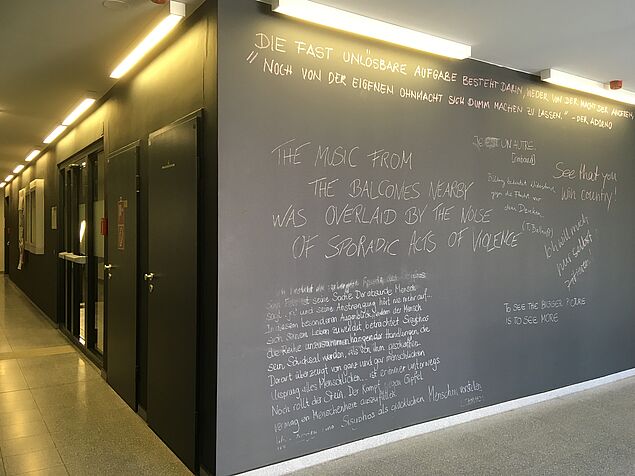 DIE FAST UNLÖSBARE AUFGABE BESTEHT DARIN, WEDER VON DER MACHT DER ANDEREN,
NOCH VON DER EIGENEN OHNMACHT SICH DUMM MACHEN ZU LASSEN." - DER ADORNO
THE MUSIC FROM
THE BALCONIES NEARBY
WAS OVERLAID BY THE NOISE
OF SPORADIC ACTS OF VIOLENCE
JE EST UN AUTRE.
(Rimbaud)
Bildung bedeutet Widerstand
gegen die Flucht vor
dem Denken.
See that you
win country!
Ich will mich
nur selbst
TO SEE THE BIGGER PICTURE
IS TO SEE MORE
seine Sache. Der absurde Mensch
sagt "ja" und seine Anstrengung hört nie mehr auf...
In diesem besonderen Augenblick, in dem der Mensch
sich seinem Leben zuwendet, betrachtet Sisyphos
die Reihe unzusammenhängender Handlungen, die
sein Schicksal werden, als von ihm geschaffen
Derart überzeugt von ganz und gar menschlichen
Ursprung alles Menschlichen, ist er immer unterwegs.
Noch rollt der Stein. Der Kampf gegen Gipfel
vermag ein Menschenherz auszufüllen
Sisyphos als glücklichen Menschen vorstellen